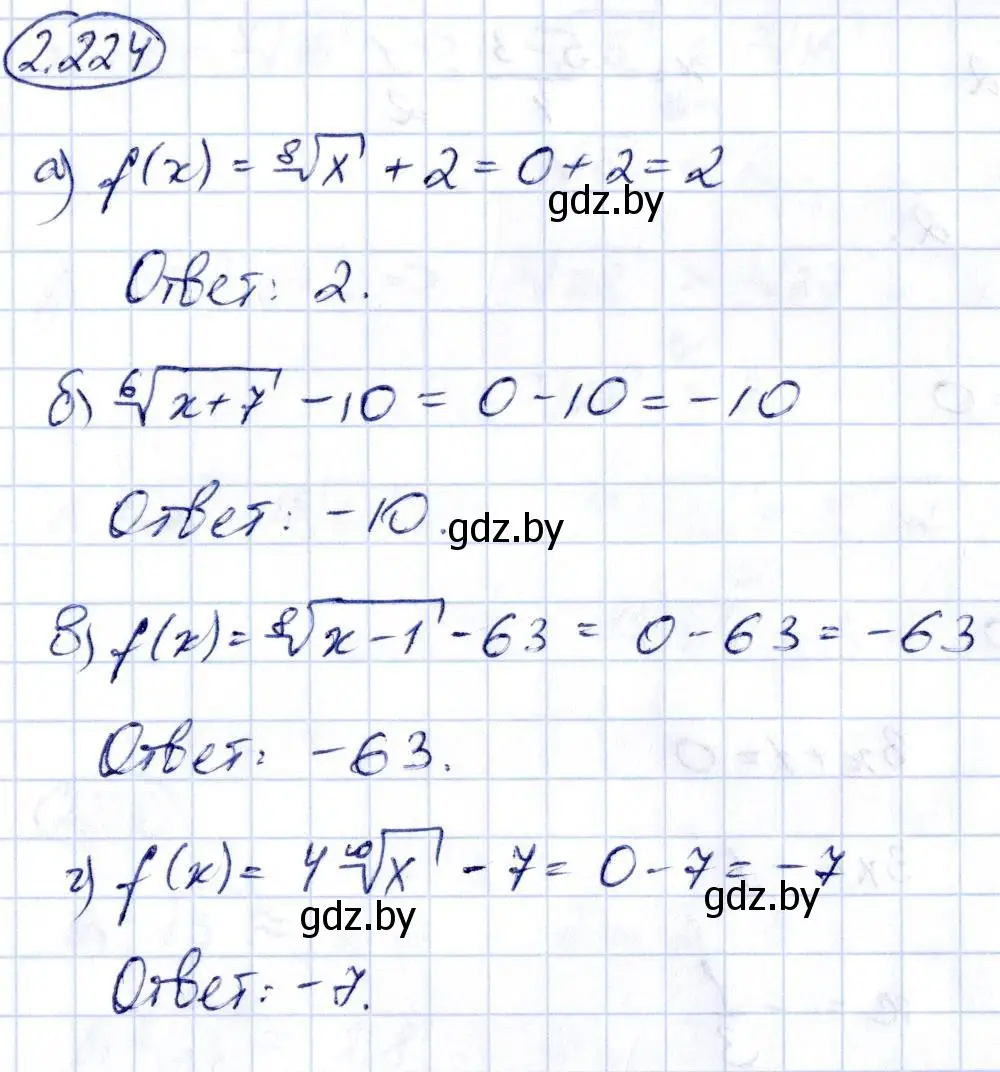 2.224
а) f(x) = ⁸√x + 2 = 0 + 2 = 2
gdz.by
Ответ: 2.
б) ⁶√(x+7) - 10 = 0 - 10 = -10
Ответ: -10.
gdz.by
в) f(x) = ⁸√(x-1) - 63 = 0 - 63 = -63
Ответ: -63.
г) f(x) = 4 ¹⁰√x - 7 = 0 - 7 = -7
gdz.by
gdz.by
Ответ: -7.